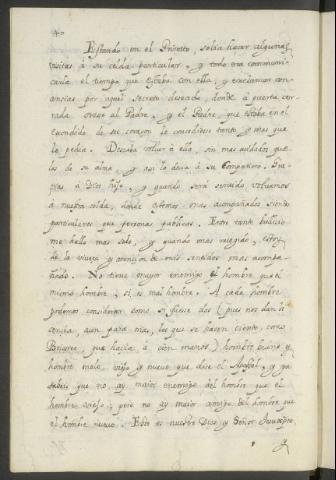 40
Estando en el Desierto solia hacer algunas
visitas à su celda particular, y todo era communi-
carle el tiempo que estaba con ella, y exclamar con
ansias por aquel secreto deseado, donde à puerta cer-
rada orase al Padre, y el Padre, que estaba en el
escondido de su corazon le concediese tanto, y mas que
le pedia. Deseaba volver à ella, sin mas cuidados que
los de su alma, y asi lo decia à su Compañero. Gra-
cias à Dios hijo, y quando será servido volvamos
à nuestra celda, donde estemos mas acompañados siendo
particulares que personas publicas. Entre tanto bullicio
me hallo mas solo, y quando mas recogido, estoy
de la viveza y atencion de mis sentidos mas acompa-
ñado. No tiene mayor enemigo el hombre que el
mismo hombre, si es mal hombre. A cada hombre
podemos considerar como si fuese dos (pues nos dan li-
cencia, aun para mas, los que se hacen ciento como
Briareo, que hacia à cien manos) hombre bueno y
hombre malo, viejo y nuevo que dice el Apostol, y ya
sabeis que no ay maior enemigo del hombre que el
hombre viejo; pero no ay maior amigo del hombre que
el hombre nuevo. Este es nuestro Dios y Señor Jesucristo,